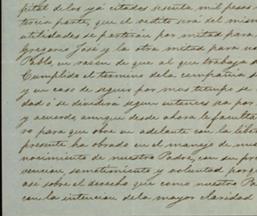 pital de los ya citados sesenta mil pesos
tercia parte, que el redito será del mismo
utilidades se partirán por mitad para
Gregorio José y la otra mitad para
Pablo, en razon de que al que trabaja
Cumplido el termino dela compañia
y en caso de seguir por mas tiempo se
dad ó se dividirá segun entonces sea por
y acuerdo, aunque desde ahora le faculta
ro para que obre en adelante con la liber
presente ha obrado en el manejo de nues
nocimiento de nuestro Padre, con su pre
vencion, sometimiento y voluntad por
asi sobre el derecho que como nuestro Pa
con la intencion dela mayor claridad